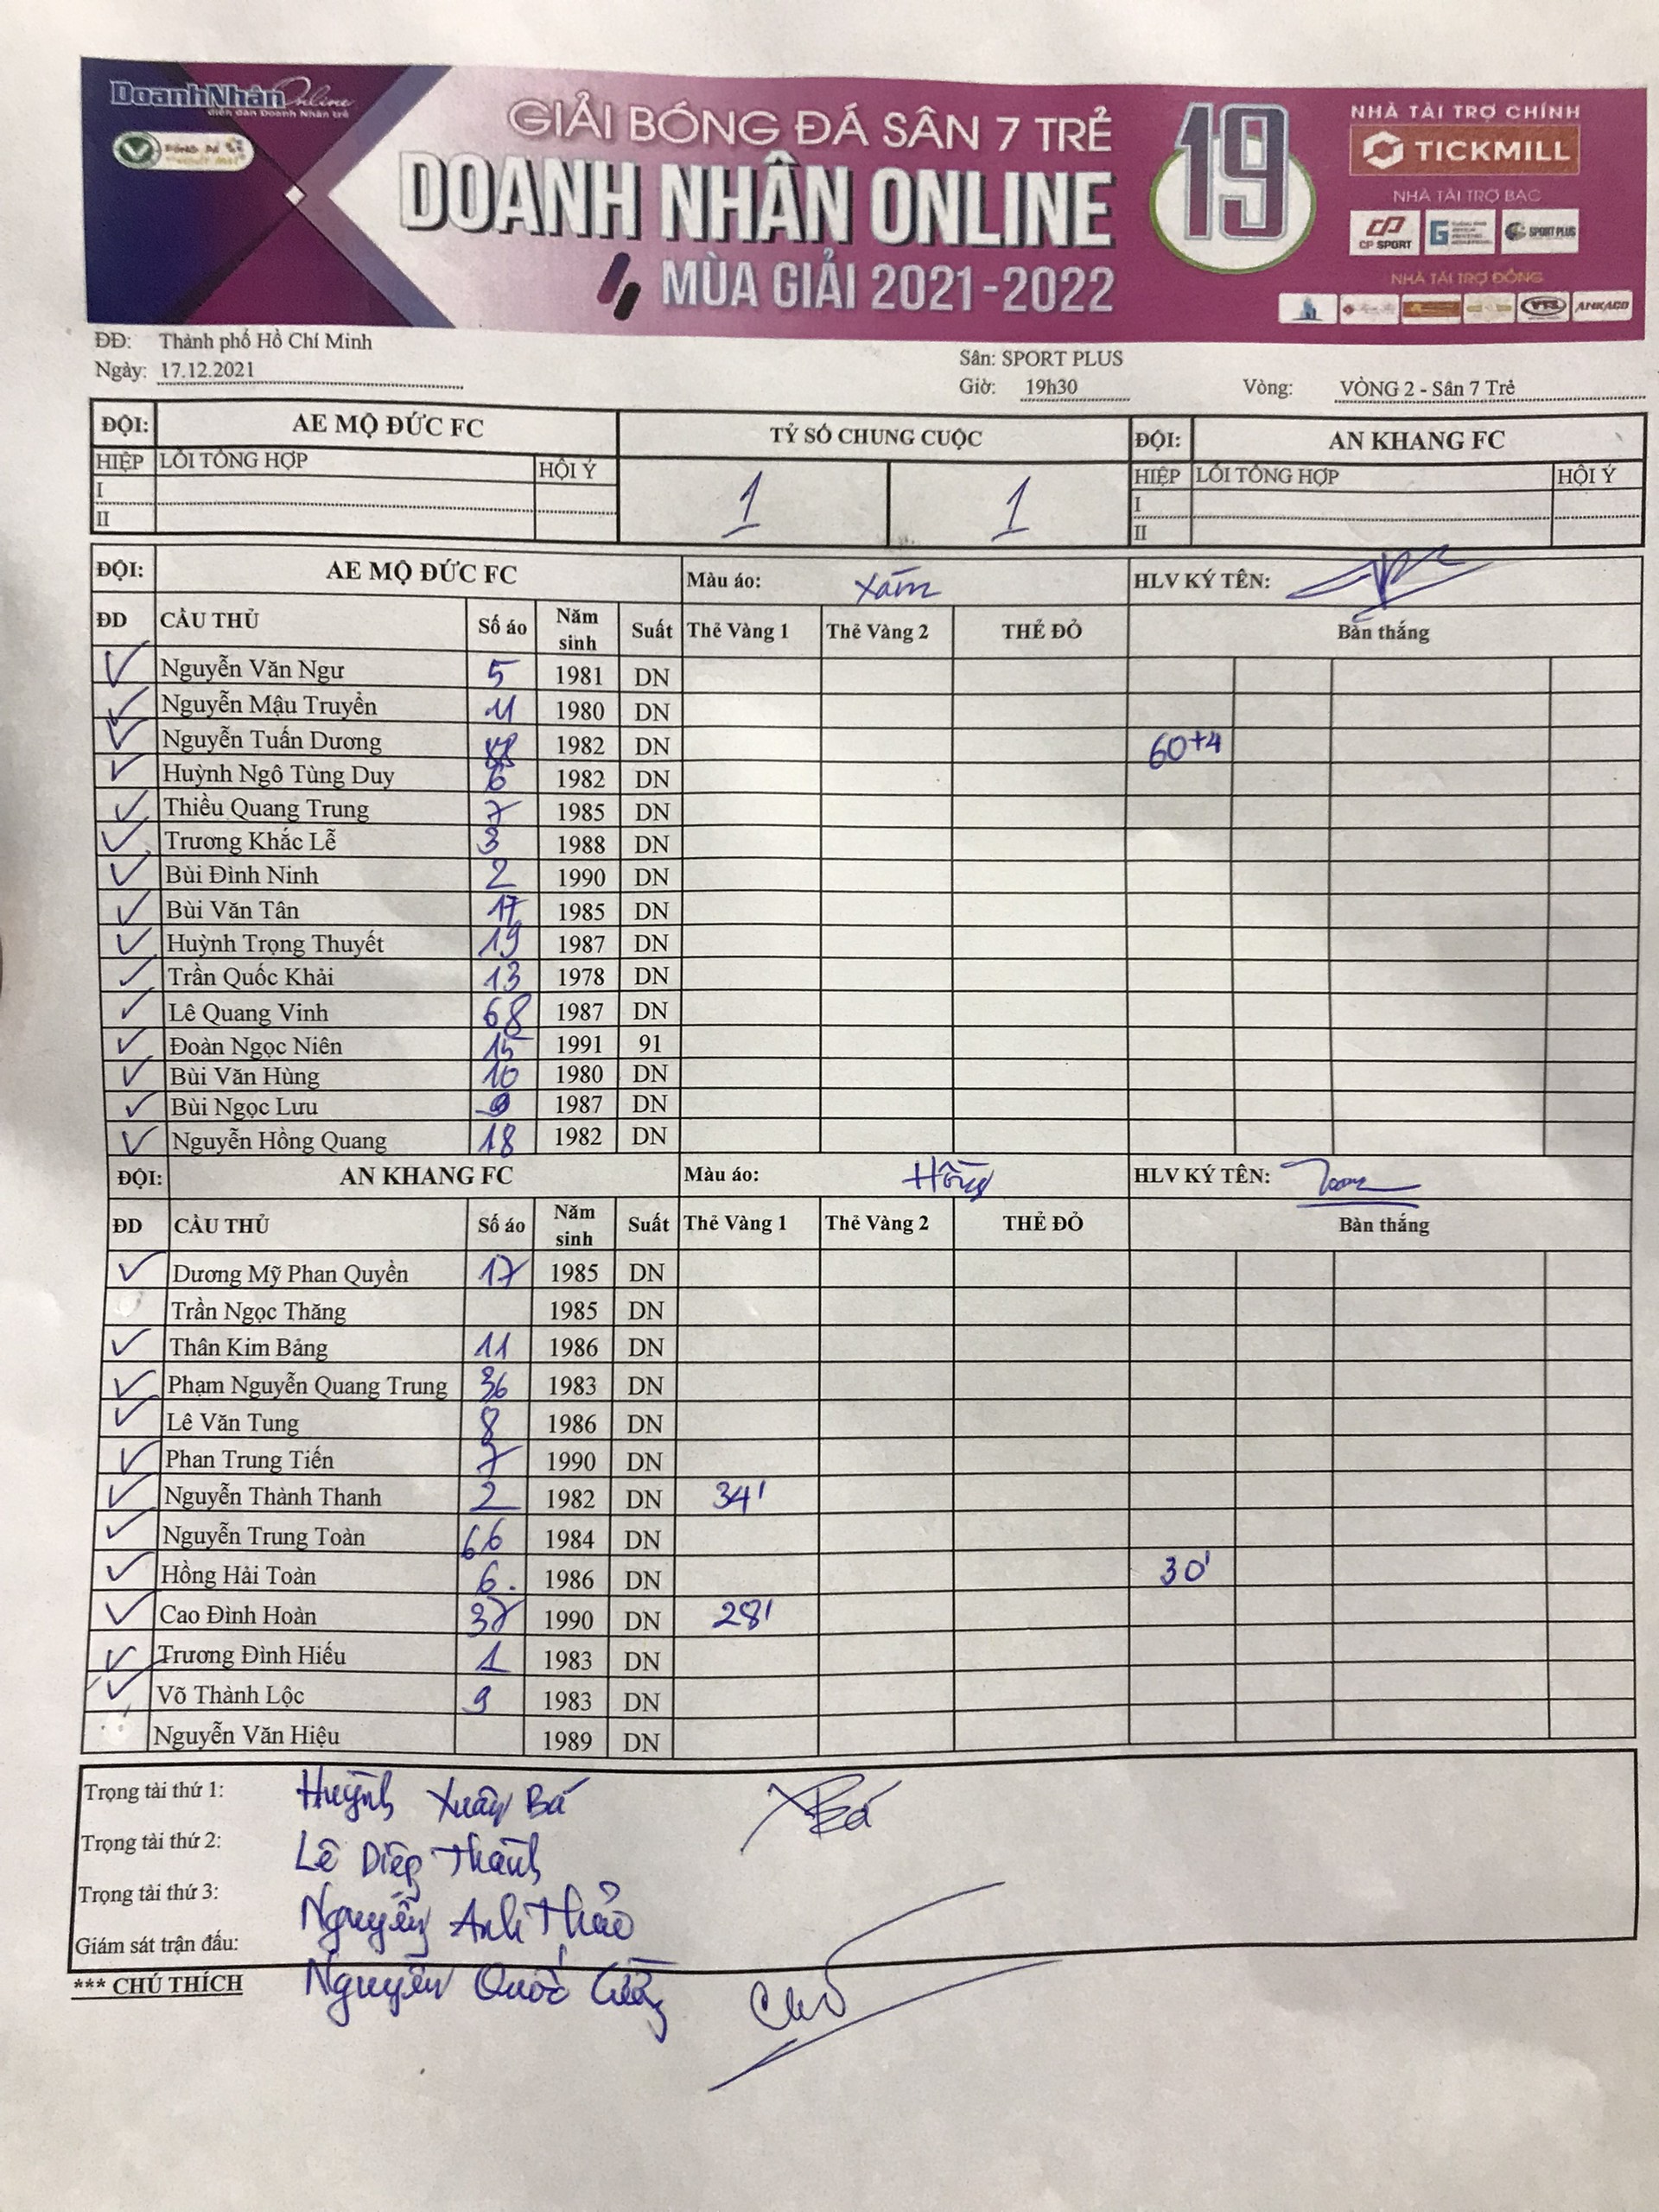 DoanhNhân Online
diễn đàn Doanh Nhân trẻ
GIẢI BÓNG ĐÁ SÂN 7 TRẺ
DOANH NHÂN ONLINE
MÙA GIẢI 2021-2022
19
NHÀ TÀI TRỢ CHÍNH
TICKMILL
NHÀ TÀI TRỢ BẠC
CP SPORT
SPORT PLUS
NHÀ TÀI TRỢ ĐỒNG
VTS ANKACO
ĐĐ: Thành phố Hồ Chí Minh
Sân: SPORT PLUS
Ngày: 17.12.2021 Giờ: 19h30 Vòng: VÒNG 2 - Sân 7 Trẻ
ĐỘI: AE MỘ ĐỨC FC TỶ SỐ CHUNG CUỘC ĐỘI: AN KHANG FC
HIỆP LỖI TỔNG HỢP HỘI Ý 1 1 HIỆP LỖI TỔNG HỢP HỘI Ý
I I
II II
ĐỘI: AE MỘ ĐỨC FC Màu áo: Xám HLV KÝ TÊN:
ĐD CẦU THỦ Số áo Năm sinh Suất Thẻ Vàng 1 Thẻ Vàng 2 THẺ ĐỎ Bàn thắng
Nguyễn Văn Ngư 5 1981 DN
Nguyễn Mậu Truyền 11 1980 DN
Nguyễn Tuấn Dương 88 1982 DN 60+4
Huỳnh Ngô Tùng Duy 6 1982 DN
Thiều Quang Trung 7 1985 DN
Trương Khắc Lễ 3 1988 DN
Bùi Đình Ninh 2 1990 DN
Bùi Văn Tân 17 1985 DN
Huỳnh Trọng Thuyết 19 1987 DN
Trần Quốc Khải 13 1978 DN
Lê Quang Vinh 68 1987 DN
Đoàn Ngọc Niên 15 1991 91
Bùi Văn Hùng 10 1980 DN
Bùi Ngọc Lưu 9 1987 DN
Nguyễn Hồng Quang 18 1982 DN
ĐỘI: AN KHANG FC Màu áo: Hồng HLV KÝ TÊN:
ĐD CẦU THỦ Số áo Năm sinh Suất Thẻ Vàng 1 Thẻ Vàng 2 THẺ ĐỎ Bàn thắng
Dương Mỹ Phan Quyền 17 1985 DN
Trần Ngọc Thăng 1985 DN
Thân Kim Bảng 11 1986 DN
Phạm Nguyễn Quang Trung 36 1983 DN
Lê Văn Tung 8 1986 DN
Phan Trung Tiến 7 1990 DN
Nguyễn Thành Thanh 2 1982 DN 34'
Nguyễn Trung Toàn 66 1984 DN
Hồng Hải Toàn 6. 1986 DN 30'
Cao Đình Hoàn 37 1990 DN 28'
Trương Đình Hiếu 1 1983 DN
Võ Thành Lộc 9 1983 DN
Nguyễn Văn Hiệu 1989 DN
Trọng tài thứ 1: Huỳnh Xuân Bá
Trọng tài thứ 2: Lê Diệp Thành
Trọng tài thứ 3: Nguyễn Anh Thảo
Giám sát trận đấu: Nguyễn Quốc
*** CHÚ THÍCH